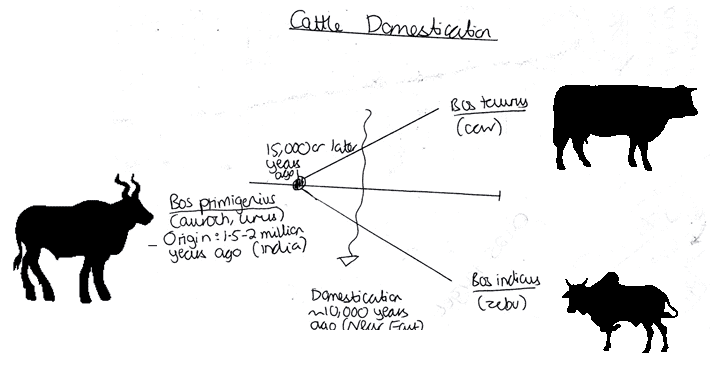 Cattle Domestication
Bos taurus
(cow)
15,000 or later
years
ago
Bos primigenius
(auroch, urus)
- Origin: 1.5-2 million
years ago (India)
Bos indicus
(zebu)
Domestication
~10,000 years
ago (Near East)